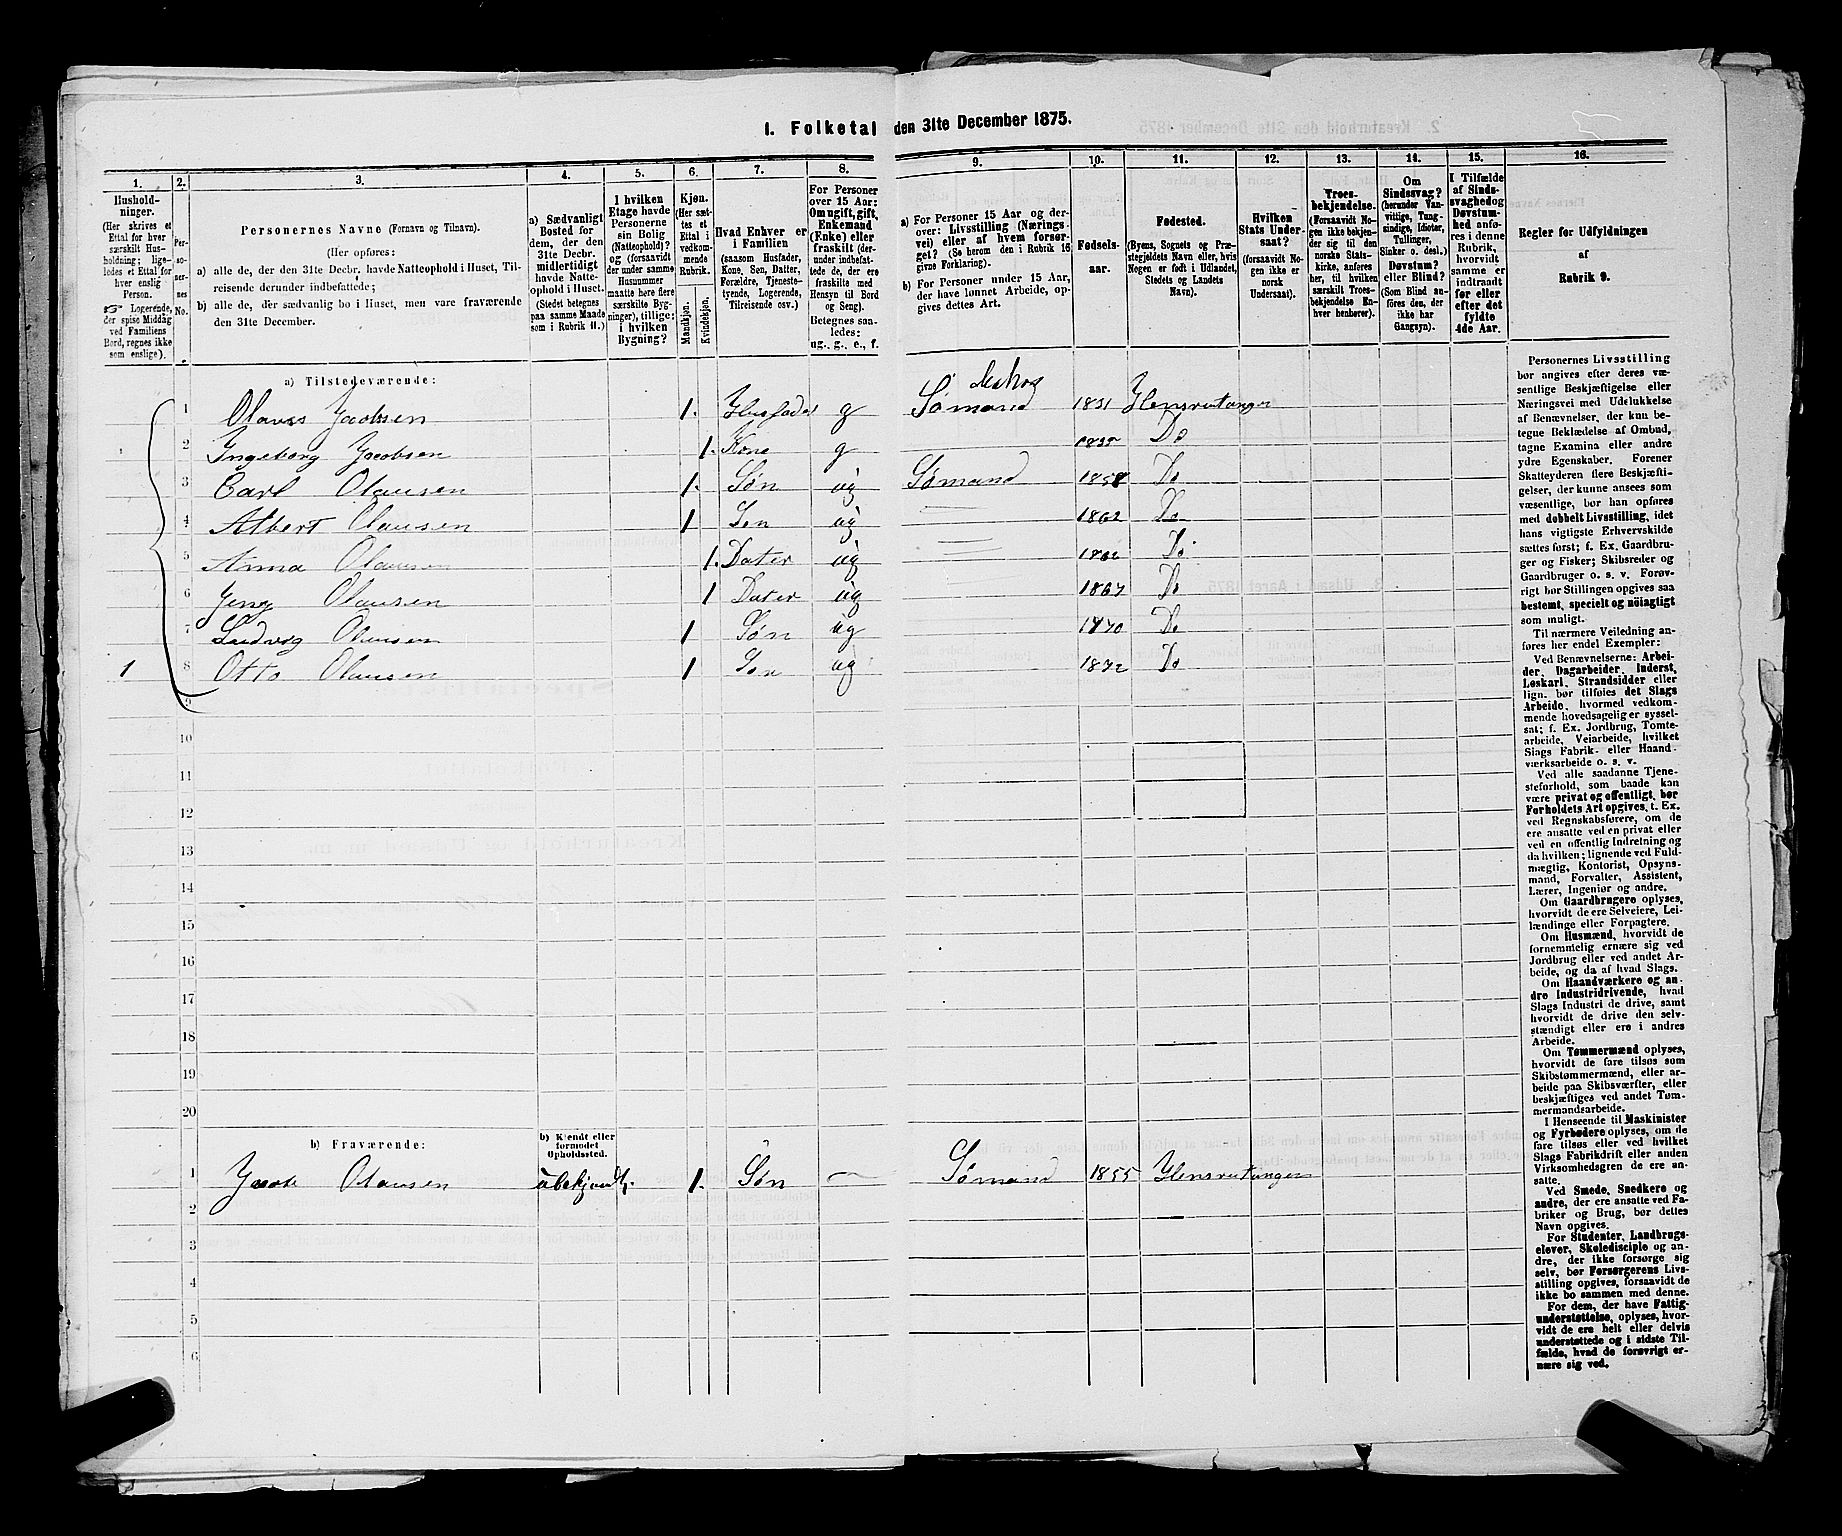 1. Folketal den 31te December 1875.
1. 2. 3. 4. 5. 6. 7. 8. 9. 10. 11. 12. 13. 14. 15. 16.
Husholdninger.
(Her skrives et
Ettal for hver
særskilt Husholdning;
ligeledes et Ettal for
hver enslig
Person.
Logerende,
der spise Middag
ved Familiens
Bord, regnes ikke
som enslige).
Personernes
No.
Personernes Navne (Fornavn og Tilnavn).
(Her opføres:
a) alle de, der den 31te Decbr. havde Natteophold i Huset, Tilreisende
derunder indbefattede;
b) alle de, der sædvanlig bo i Huset, men vare fraværende
den 31te December.
a) Sædvanligt
Bosted for
dem, der den
31te Decbr.
midlertidigt
havde Natteophold
i Huset.
(Stedet betegnes
paa samme Maade
som i Rubrik 11.)
I hvilken
Etage havde
Personerne
sin Bolig
(Natteophold)?
og (forsaavidt
der under samme
Husnummer
maatte here flere
særskilte Bygninger),
tillige:
i hvilken
Bygning?
Kjøn.
(Her sættes
et
Ettal i
vedkommende
Rubrik.
Mandkjøn.
Kvindekjøn.
Hvad Enhver er
i Familien
(saasom Husfader,
Kone, Søn, Datter,
Forældre, Tjenestetyende,
Logerende,
Tilreisende osv.)
For Personer
over 15 Aar:
Om ugift, gift,
Enkemand
(Enke) eller
fraskilt (derunder
indbefattede
de, der ere
fraskilte med
Hensyn til Bord
og Seng).
Betegnes saaledes:
ug., g., e., f.
a) For Personer 15 Aar og derover:
Livsstilling (Næringsvei)
eller af hvem forsørget?
(Se herom den i Rubrik 16
givne Forklaring).
b) For Personer under 15 Aar,
der have lønnet Arbeide, opgives
dettes Art.
Fødselsaar.
Fødested.
(Byens, Sognets og Præstegjeldets
Navn eller, hvis
Nogen er født i Udlandet,
Stedets og Landets
Navn).
Hvilken
Stats Undersaat?
(forsaavidt Nogen
ikke er
norsk
Undersaat).
Troesbekjendelse.
(Forsaavidt Nogen
ikke bekjender
sig til den
norske Statskirke,
anføres
her, til hvilken
særskilt Troesbekjendelse
Enhver
henhører).
Om
Sindssvag?
(herunder Vanvittige,
Tungsindige,
Idioter,
Tullinger,
Sinker o. desl.)
Døvstum?
eller Blind?
(Som Blind anføres
den, der
ikke har
Gangsyn).
I Tilfælde
af Sindssvaghed
og
Døvstumhed
anføres
i denne
Rubrik,
hvorvidt
samme er
indtraadt
før eller
efter det
fyldte
4de Aar.
Regler for Udfyldningen
af
Rubrik 9.
a) Tilstedeværende:
1 Olaves Jacobsen 1. Husfader g Sømand 1831 Hensrutangen
2 Ingeborg Jacobsen 1. Kone g Do
3 Carl Olausen 1. Søn ug Sømand 1858 Do
4 Albert Olausen 1 Søn ug 1862 Do
5 Anna Olausen 1. Dater ug Do
6 Olausen 1 Dater ug 1867 Do
7 Ludvig Olausen 1 Søn ug 1870 Do
1 8 Otto Olausen 1 Søn ug 1872 Do
9
10
11
12
13
14
15
16
17
18
19
20
b) Fraværende:
b) Kjendt eller
formodet
Opholdssted.
1 Olausen 1. Søn Sømand 1855 Hensrutangen
2
3
4
5
6
Personernes Livsstilling
bør angives efter deres væsentlige
Beskjæftigelse eller
Næringsvei med Udelukkelse
af Benævnelser, der kun betegne
Beklædelse af Ombud,
tagne Examina eller andre
ydre Egenskaber. Forener
Skatteyderen flere Beskjæftigelser,
der kunne ansees som
væsentlige, bør han opføres
med dobbelt Livsstilling, idet
hans vigtigste Erhvervskilde
sættes først; f. Ex. Gaardbruger
og Fisker; Skibsreder og
Gaardbruger o. s. v. Forøvrigt
bør Stillingen opgives saa
bestemt, specielt og nöiagtigt
som muligt.
Til nærmere Veiledning anføres
her endel Exempler:
Ved Benævnelserne: Arbeider,
Dagarbeider, Inderst,
Løskarl, Strandsidder eller
lign. bør tilføies det Slags
Arbeide, hvormed vedkommende
hovedsagelig er sysselsat;
f. Ex. Jordbrug, Tomtearbeide,
Veiarbeide, hvilket
Slags Fabrik- eller Haandværksarbeide
o. s. v.
Ved alle saadanne Tjenesteforhold,
som baade kan
være privat og offentligt, bør
Forholdets Art opgives, t. Ex.
ved Regnskabsførere, om de
ere ansatte ved en privat eller
ved en offentlig Indretning og
da hvilken; lignende ved Fuldmægtig,
Kontorist, Opsynsmand,
Forvalter, Assistent,
Lærer, Ingeniør og andre.
Om Gaardbrugere oplyses,
hvorvidt de ere Selveiere, Leilændinge
eller Forpagtere.
Om Husmænd, hvorvidt de
fornemmelig ernære sig ved
Jordbrug eller ved andet Arbeide,
og da af hvad Slags.
Om Haandværkere og andre
Industridrivende, hvad
Slags Industri de drive, samt
hvorvidt de drive den selvstændigt
eller ere i andres
Arbeide.
Om Tømmermænd oplyses,
hvorvidt de fare tilsøs som
Skibstømmermænd, eller arbeide
paa Skibsværfter, eller
beskjæftiges ved andet Tømmermandsarbeide.
I Henseende til Maskinister
og Fyrbødere oplyses, om de
fare tilsøs eller ved hvilket
Slags Fabrikdrift eller anden
Virksomhedsgren de ere ansatte.
Ved Smede, Snedkere og
andre, der ere ansatte ved Fabriker
og Brug, bør dettes
Navn opgives.
For Studenter, Landbrugselever,
Skoledisciple og andre,
der ikke forsørge sig
selv, bør Forsørgerens Livsstilling
opgives, forsaavidt de
ikke bo sammen med denne.
For dem, der have Fattigunderstøttelse,
oplyses, hvorvidt
de ere helt eller delvis
understøttede og i sidste Tilfælde,
hvad de forøvrigt ernære
sig ved.